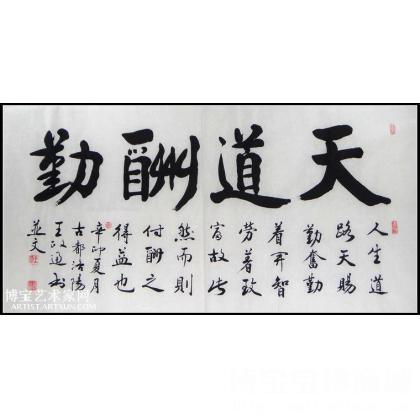 天道酬勤
人生道
路天賜
勤奮勤
着开智
勞著致
富故此
然而則
付酬之
得益也
辛卯夏月
古都洛陽
並文
博宝艺术家网
ARTIST.ARTXUN.COM